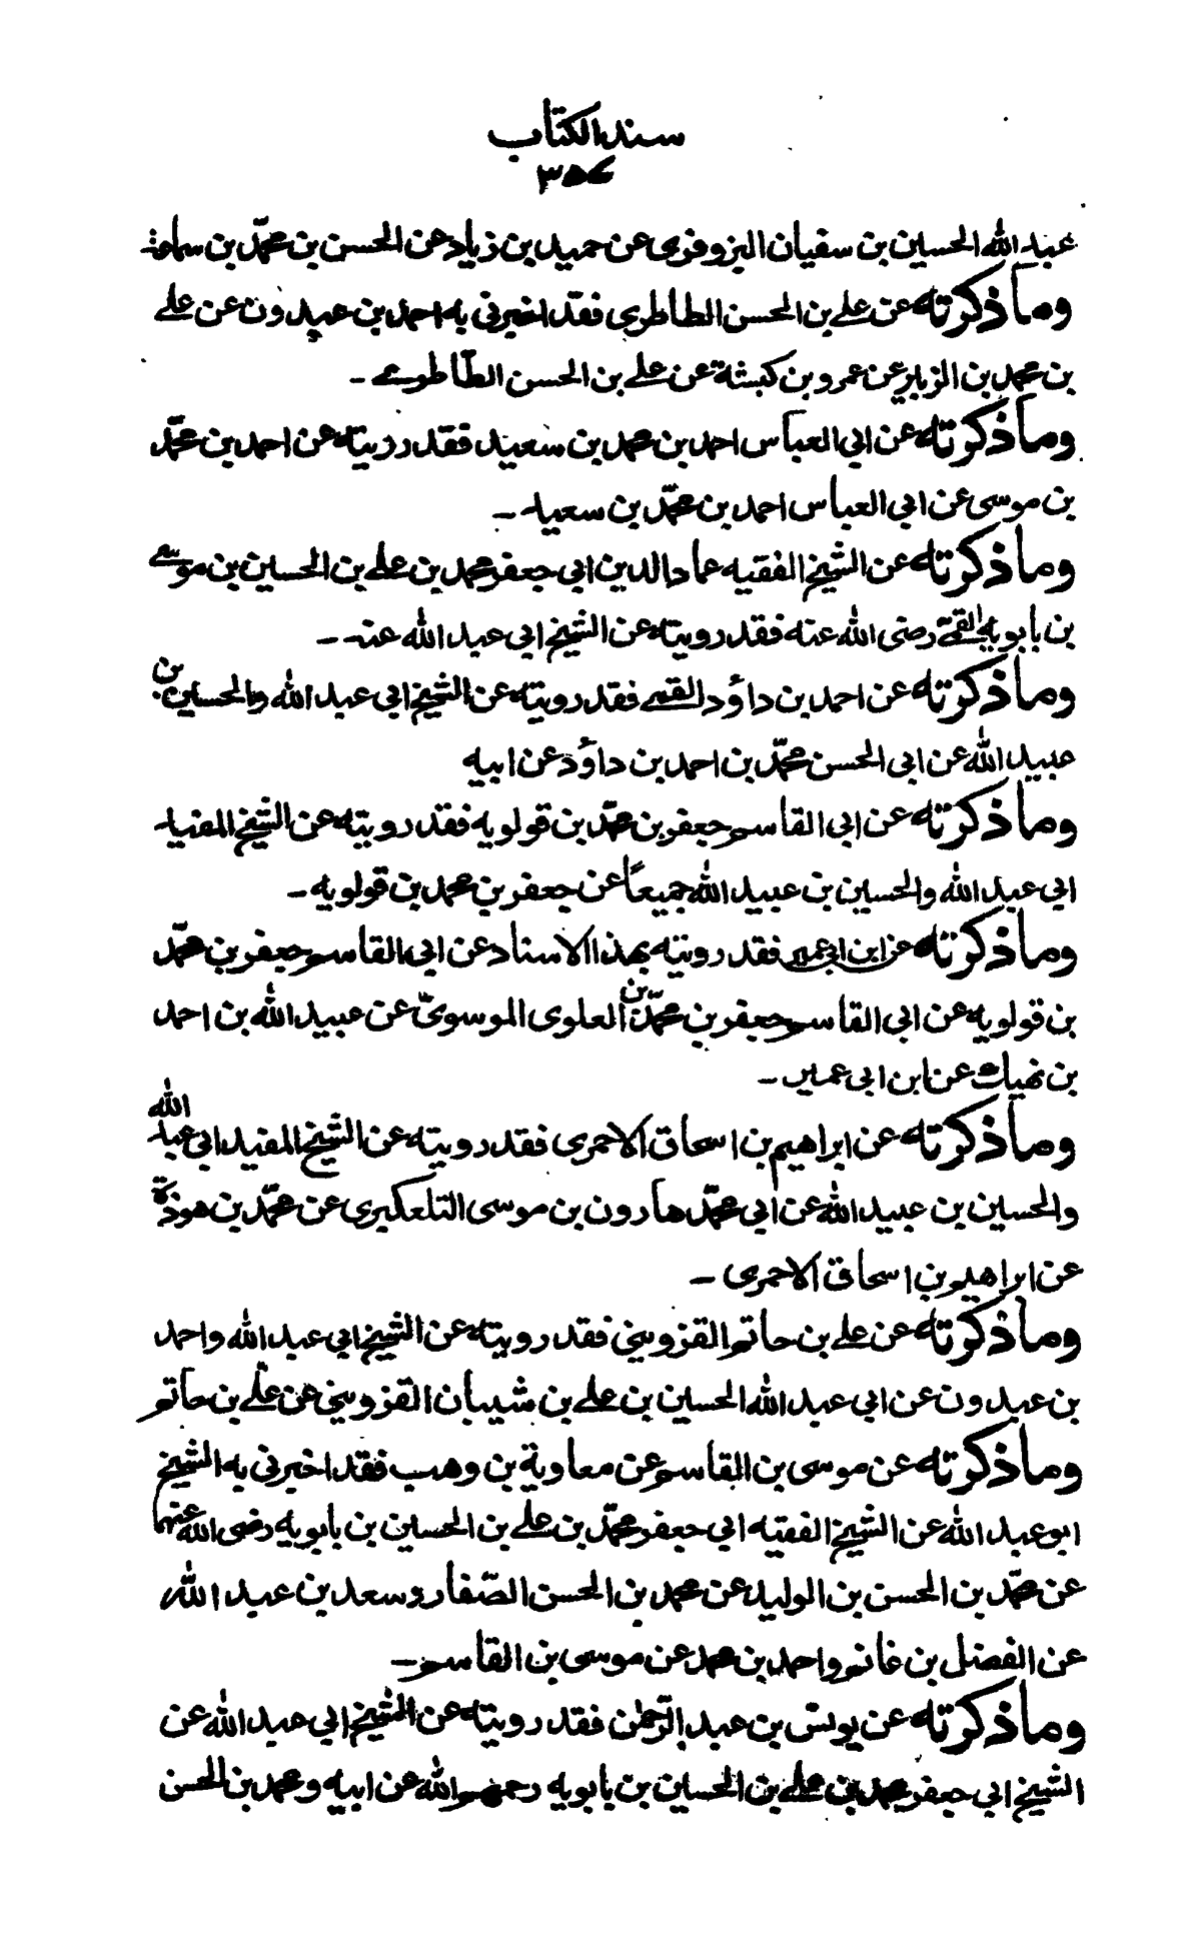 سند الکتاب
۳۵۷
عبد الله الحسین بن سفیان البزوفری عن حمید بن زیاد عن الحسن بن محمّد بن سماعة
وما ذکرته عن علے بن الحسن الطاطری فقد اخبرنی به احمد بن عبدون عن علے
بن محمد بن الزبیر عن عمرو بن کبشة عن علے بن الحسن الطّاطرے ـ
وما ذکرته عن ابی العباس احمد بن محمد بن سعید فقد رویته عن احمد بن محمّد
بن موسی عن ابی العباس احمد بن محمّد بن سعید ـ
وما ذکرته عن الشیخ الفقیه عماد الدین ابی جعفر محمد بن علے بن الحسین بن موسے
بن بابویه القمے رضی الله عنه فقد رویته عن الشیخ ابی عبد الله عنه ـ ـ
وما ذکرته عن احمد بن داؤد القمے فقد رویته عن الشیخ ابی عبد الله والحسین بن
عبید الله عن ابی الحسن محمّد بن احمد بن داؤد عن ابیه
وما ذکرته عن ابی القاسم جعفر بن محمّد بن قولویه فقد رویته عن الشیخ المفید
ابی عبد الله والحسین بن عبید الله جمیعًا عن جعفر بن محمد بن قولویه ـ
وما ذکرته عن ابن ابی عمیر فقد رویته بهذا الاسناد عن ابی القاسم جعفر بن محمّد
بن قولویه عن ابی القاسم جعفر بن محمّد بن العلوی الموسویّ عن عبید الله بن احمد
بن نهیك عن ابن ابی عمیر ـ
وما ذکرته عن ابراهیم بن اسحاق الاحمری فقد رویته عن الشیخ المفید ابی عبد الله
والحسین بن عبید الله عن ابی محمّد هارون بن موسی التلعکبری عن محمّد بن هوذة
عن ابراهیم بن اسحاق الاحمری ـ
وما ذکرته عن علے بن حاتم القزوینی فقد رویته عن الشیخ ابی عبد الله واحمد
بن عبدون عن ابی عبد الله الحسین بن علے بن شیبان القزوینی عن علّے بن حاتم
وما ذکرته عن موسی بن القاسم عن معاویة بن وهب فقد اخبرنی به الشیخ
ابو عبد الله عن الشیخ الفقیه ابی جعفر محمّد بن علے بن الحسین بن بابویه رضی الله عنهما
عن محمّد بن الحسن بن الولید عن محمد بن الحسن الصّفار وسعد بن عبد الله
عن الفضل بن غانم واحمد بن محمد عن موسی بن القاسم ـ
وما ذکرته عن یونس بن عبد الرّحمٰن فقد رویته عن الشیخ ابی عبد الله عن
الشیخ ابی جعفر محمد بن علے بن الحسین بن بابویه رحمهم الله عن ابیه ومحمد بن الحسن